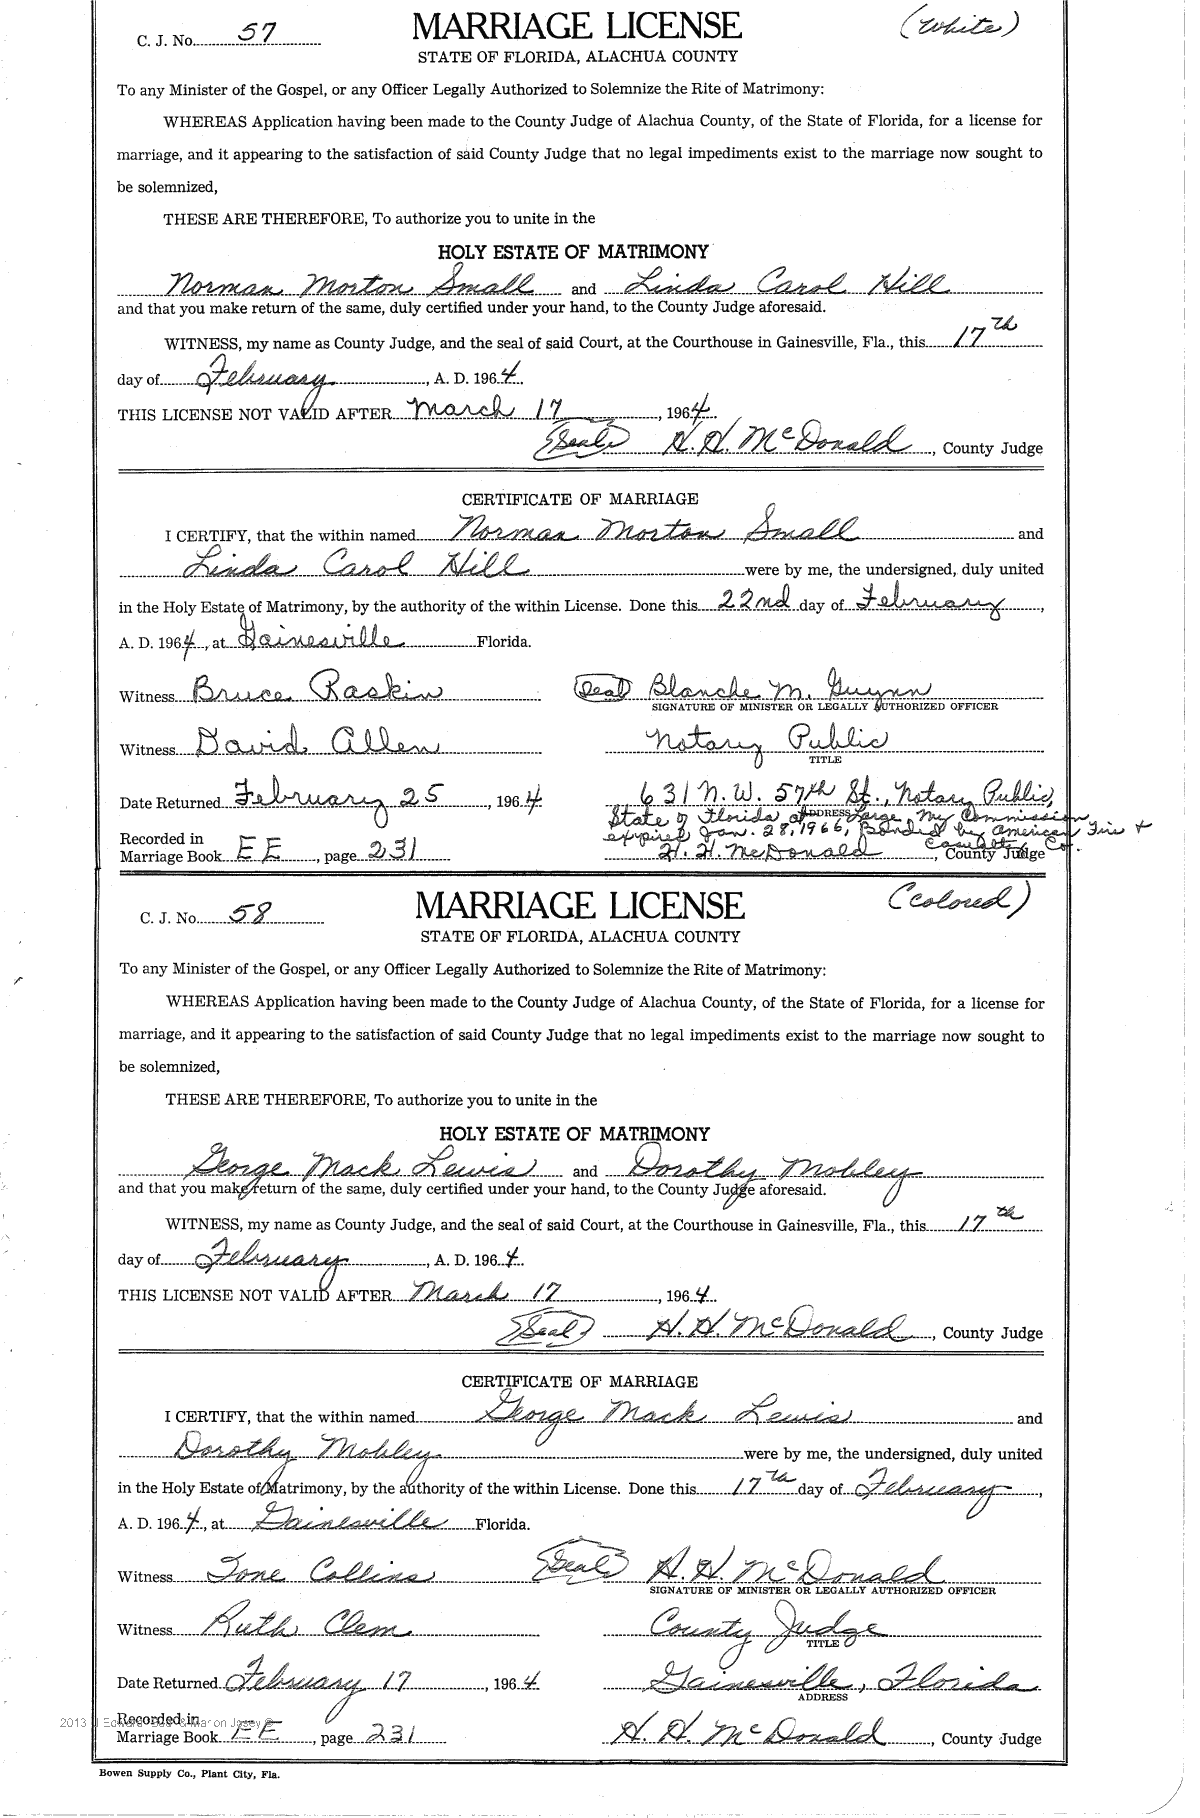 C. J. No. 57 MARRIAGE LICENSE (White)
STATE OF FLORIDA, ALACHUA COUNTY
To any Minister of the Gospel, or any Officer Legally Authorized to Solemnize the Rite of Matrimony:
WHEREAS Application having been made to the County Judge of Alachua County, of the State of Florida, for a license for
marriage, and it appearing to the satisfaction of said County Judge that no legal impediments exist to the marriage now sought to
be solemnized,
THESE ARE THEREFORE, To authorize you to unite in the
HOLY ESTATE OF MATRIMONY
Norman Morton Small and Linda Carol Hill
and that you make return of the same, duly certified under your hand, to the County Judge aforesaid.
WITNESS, my name as County Judge, and the seal of said Court, at the Courthouse in Gainesville, Fla., this 17th
day of February, A. D. 1964.
THIS LICENSE NOT VALID AFTER March 17, 1964.
(Seal) H. H. McDonald, County Judge
CERTIFICATE OF MARRIAGE
I CERTIFY, that the within named Norman Morton Small and
Linda Carol Hill were by me, the undersigned, duly united
in the Holy Estate of Matrimony, by the authority of the within License. Done this 22nd day of February,
A. D. 1964, at Gainesville Florida.
Witness Bruce Raskin (Seal) Blanche M. Guynn
SIGNATURE OF MINISTER OR LEGALLY AUTHORIZED OFFICER
Witness David Allen Notary Public
TITLE
Date Returned February 25, 1964 631 N.W. 57th St., Notary Public,
State of Florida at Large, My Commission
ADDRESS
expires Jan. 28, 1966, Bonded by American Fire &
Casualty Co.
Recorded in
Marriage Book EE, page 231 H. H. McDonald, County Judge
C. J. No. 58 MARRIAGE LICENSE (colored)
STATE OF FLORIDA, ALACHUA COUNTY
To any Minister of the Gospel, or any Officer Legally Authorized to Solemnize the Rite of Matrimony:
WHEREAS Application having been made to the County Judge of Alachua County, of the State of Florida, for a license for
marriage, and it appearing to the satisfaction of said County Judge that no legal impediments exist to the marriage now sought to
be solemnized,
THESE ARE THEREFORE, To authorize you to unite in the
HOLY ESTATE OF MATRIMONY
George Mack Lewis and Dorothy Mobley
and that you make return of the same, duly certified under your hand, to the County Judge aforesaid.
WITNESS, my name as County Judge, and the seal of said Court, at the Courthouse in Gainesville, Fla., this 17th
day of February, A. D. 1964.
THIS LICENSE NOT VALID AFTER March 17, 1964.
(Seal) H. H. McDonald, County Judge
CERTIFICATE OF MARRIAGE
I CERTIFY, that the within named George Mack Lewis and
Dorothy Mobley were by me, the undersigned, duly united
in the Holy Estate of Matrimony, by the authority of the within License. Done this 17th day of February,
A. D. 1964, at Gainesville Florida.
Witness Ione Collins (Seal) H. H. McDonald
SIGNATURE OF MINISTER OR LEGALLY AUTHORIZED OFFICER
Witness Ruth Clem County Judge
TITLE
Date Returned February 17, 1964 Gainesville, Florida
ADDRESS
Recorded in
Marriage Book EE, page 231 H. H. McDonald, County Judge
Bowen Supply Co., Plant City, Fla.